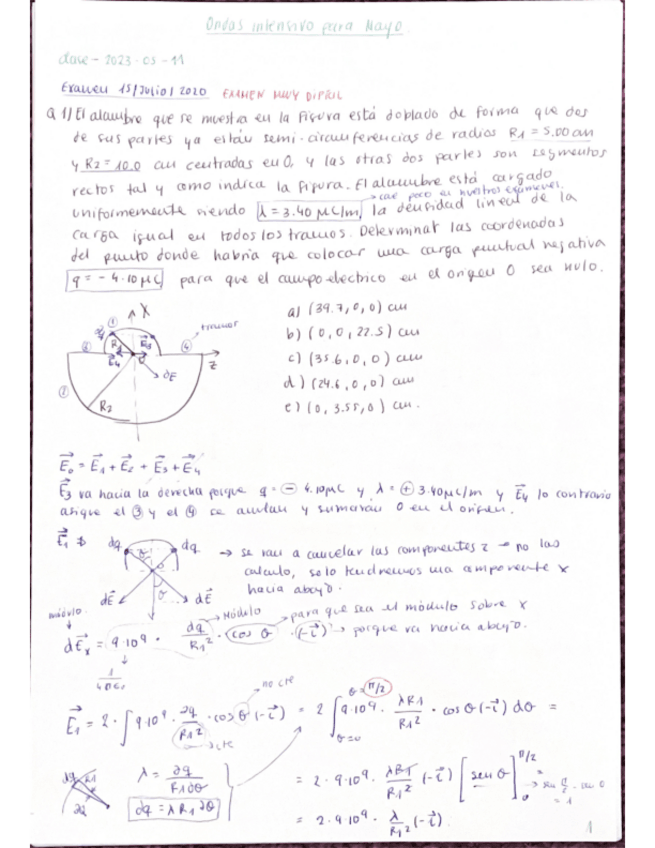 Ondas intensivo para Mayo.
clase - 2023-05-11
Examen 15/Julio/2020 EXAMEN MUY DIFICIL
Q 1) El alambre que se muestra en la Figura está doblado de forma que dos
de sus partes ya están semi-circunferencias de radios R1 = 5.00 cm
y R2 = 10.0 cm centradas en O, y las otras dos partes son segmentos
rectos tal y como indica la Figura. El alambre está cargado
→ cae poco en nuestros exámenes.
uniformemente siendo λ = 3.40 μC/m, la densidad lineal de la
carga igual en todos los tramos. Determinar las coordenadas
del punto donde habría que colocar una carga puntual negativa
q = - 4.10 μC para que el campo eléctrico en el origen O sea nulo.
X
① dq
R1 E3
tramos
③ ④
E4 O z
dE
②
R2
a) (39.7, 0, 0) cm
b) (0, 0, 22.5) cm
c) (35.6, 0, 0) cm
d) (24.6, 0, 0) cm
e) (0, 3.55, 0) cm.
E0 = E1 + E2 + E3 + E4
E3 va hacia la derecha porque q = ⊖ 4.10μC y λ = ⊕ 3.40μC/m y E4 lo contrario
asique el ③ y el ④ se anulan y sumarán 0 en el origen.
E1 ⇒ dq dq → se van a cancelar las componentes z → no las
calculo, solo tendremos una componente x
hacia abajo.
θ
dE dE
módulo módulo para que sea el módulo sobre x
dEx = 9·10⁹ · dq/R1² · cos θ · (-i) → porque va hacia abajo.
1/4πε0
no cte
E1 = 2 · ∫ 9·10⁹ · dq/R1² · cos θ (-i) = 2 ∫θ=0^θ=π/2 9·10⁹ · λR1/R1² · cos θ (-i) dθ =
→ cte
λ = dq/R1dθ
dq = λR1dθ
dq R1
dθ
= 2 · 9·10⁹ · λR1/R1² (-i) [sen θ]0^π/2
= 1
= 2 · 9·10⁹ · λ/R1² (-i)
1